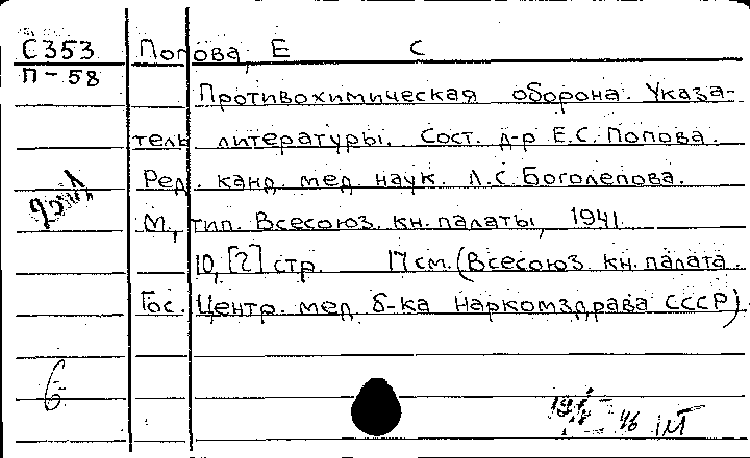 С353 Попова, Е С
П-58
Противохимическая оборона. Указа-
тель литературы. Сост. д-р Е.С. Попова.
Ред. канд. мед. наук. Л.С. Боголепова.
М., тип. Всесоюз. кн. палаты, 1941.
10, [2] стр. 17 см. (Всесоюз. кн. палата.
Гос. Центр. мед. б-ка Наркомздрава СССР)
6